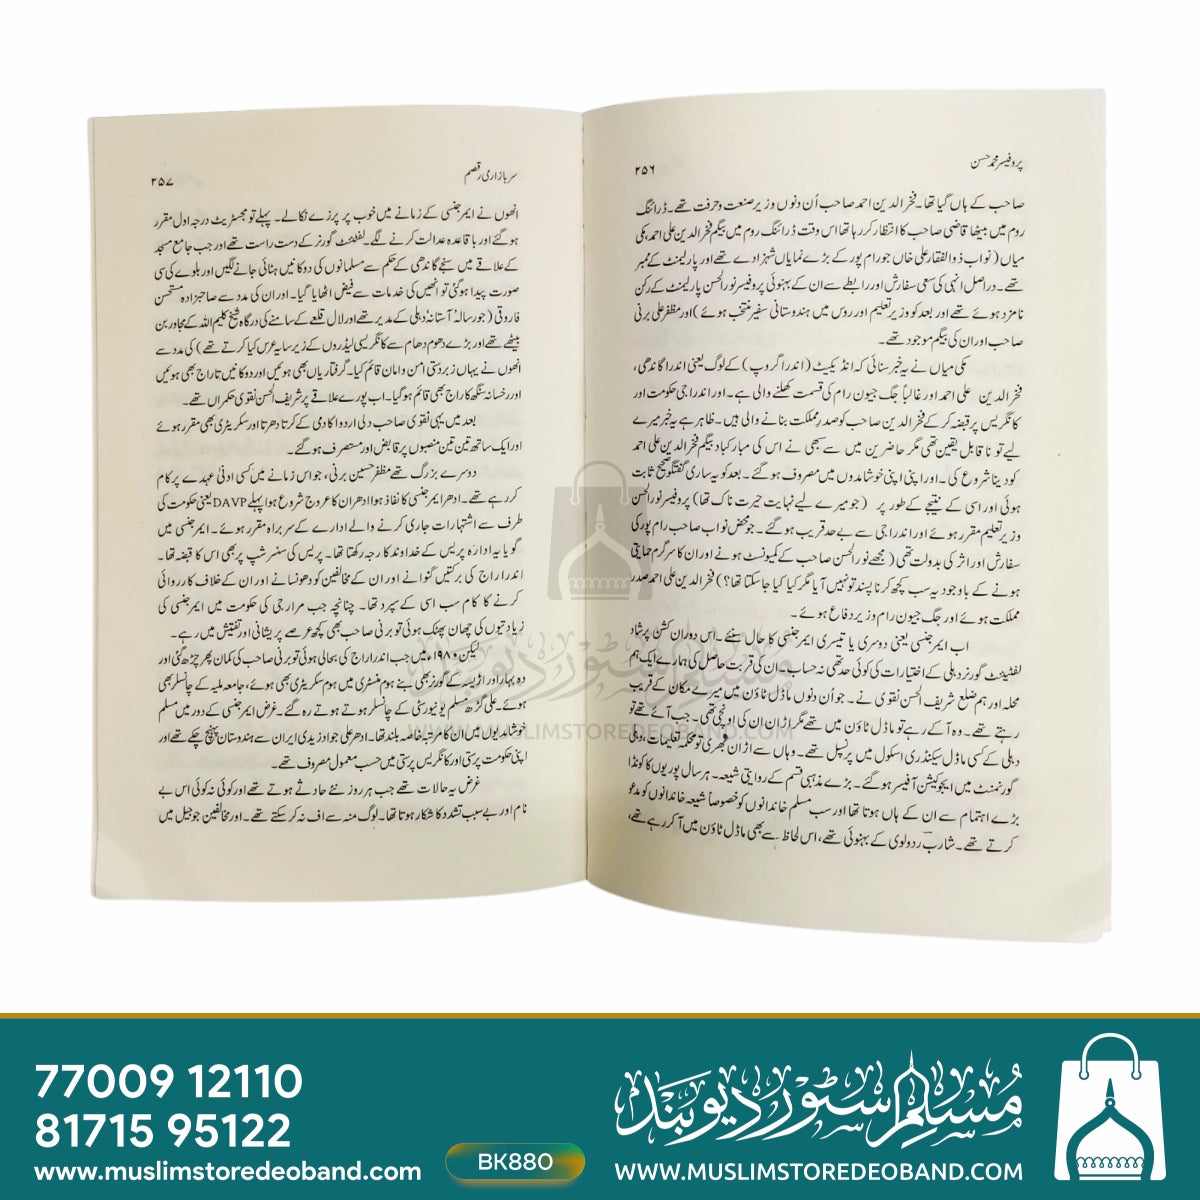 پروفیسر محمد حسن
۲۵۶
صاحب کے ہاں گیا تھا۔ فخر الدین احمد صاحب اُن دنوں وزیر صنعت و حرفت تھے۔ ڈرائنگ
روم میں بیٹھا قاضی صاحب کا انتظار کر رہا تھا اس وقت ڈرائنگ روم میں بیگم فخر الدین علی احمد، مکی
میاں (نواب ذوالفقار علی خاں جو رام پور کے بڑے نمایاں شہزادے تھے اور پارلیمنٹ کے ممبر
تھے۔ دراصل انہی کی سعی سفارش اور رابطے سے ان کے بہنوئی پروفیسر نور الحسن پارلیمنٹ کے رکن
نامزد ہوئے تھے اور بعد کو وزیر تعلیم اور روس میں ہندوستانی سفیر منتخب ہوئے) اور مظفر علی برنی
صاحب اور ان کی بیگم موجود تھے۔
مکی میاں نے یہ خبر سنائی کہ انڈیکیٹ (اندرا گروپ) کے لوگ یعنی اندرا گاندھی،
فخر الدین علی احمد اور غالباً جگ جیون رام کی قسمت کھلنے والی ہے۔ اور اندرا جی حکومت اور
کانگریس پر قبضہ کر کے فخر الدین صاحب کو صدر مملکت بنانے والی ہیں۔ ظاہر ہے یہ خبر میرے
لیے تو نا قابل یقین تھی مگر حاضرین میں سے سبھی نے اس کی مبارکباد بیگم فخر الدین علی احمد
کو دینا شروع کی۔ اور اپنی اپنی خوشامدوں میں مصروف ہو گئے۔ بعد کو یہ ساری گفتگو صحیح ثابت
ہوئی اور اسی کے نتیجے کے طور پر (جو میرے لیے نہایت حیرت ناک تھا) پروفیسر نور الحسن
وزیر تعلیم مقرر ہوئے اور اندرا جی سے بے حد قریب ہو گئے۔ جو محض نواب صاحب رام پور کی
سفارش اور اثر کی بدولت تھی (مجھے نور الحسن صاحب کے کمیونسٹ ہونے اور ان کا سرگرم حمایتی
ہونے کے باوجود یہ سب کچھ کرنا پسند تو نہیں آیا مگر کیا کیا جا سکتا تھا؟) فخر الدین علی احمد صدر
مملکت ہوئے اور جگ جیون رام وزیر دفاع ہوئے۔
اب ایمرجنسی یعنی دوسری یا تیسری ایمرجنسی کا حال سنئے۔ اس دوران کشن پرشاد
لفٹیننٹ گورنر دہلی کے اختیارات کی کوئی حد تھی نہ حساب۔ ان کی قربت حاصل کی ہمارے ایک ہم
محلہ اور ہم ضلع شریف الحسن نقوی نے۔ جو اُن دنوں ماڈل ٹاؤن میں میرے مکان کے قریب
رہتے تھے۔ وہ آ کے رہے تو ماڈل ٹاؤن میں تھے مگر اڑان ان کی اونچی تھی۔ جب آئے تھے تو
دہلی کے کسی ماڈل سیکنڈری اسکول میں پرنسپل تھے۔ وہاں سے اڑان بھری تو محکمہ تعلیمات، دہلی
گورنمنٹ میں ایجوکیشن آفیسر ہو گئے۔ بڑے مذہبی قسم کے روایتی شیعہ۔ ہر سال پوریوں کا کونڈا
بڑے اہتمام سے ان کے ہاں ہوتا تھا اور سب مسلم خاندانوں کو خصوصاً شیعہ خاندانوں کو مدعو
کرتے تھے۔ شارب ردولوی کے بہنوئی تھے، اس لحاظ سے بھی ماڈل ٹاؤن میں آ کر رہے تھے،
سر بازار می رقصم
۲۵۷
انھوں نے ایمرجنسی کے زمانے میں خوب پر پرزے نکالے۔ پہلے تو مجسٹریٹ درجہ اول مقرر
ہو گئے اور باقاعدہ عدالت کرنے لگے۔ لفٹیننٹ گورنر کے دست راست تھے اور جب جامع مسجد
کے علاقے میں سنجے گاندھی کے حکم سے مسلمانوں کی دوکانیں ہٹائی جانے لگیں اور بلوے کی سی
صورت پیدا ہو گئی تو انھیں کی خدمات سے فیض اٹھایا گیا۔ اور ان کی مدد سے صاحبزادہ مستحسن
فاروقی (جو رسالہ آستانہ دہلی کے مدیر تھے اور لال قلعے کے سامنے کی درگاہ شیخ کلیم اللہ کے مجاور بن
بیٹھے تھے اور بڑے دھوم دھام سے کانگریسی لیڈروں کے زیر سایہ عرس کیا کرتے تھے) کی مدد سے
انھوں نے یہاں زبردستی امن و امان قائم کیا۔ گرفتاریاں بھی ہوئیں اور دوکانیں تاراج بھی ہوئیں
اور رخسانہ سنگھ کا راج بھی قائم ہو گیا۔ اب پورے علاقے پر شریف الحسن نقوی حکمراں تھے۔
بعد میں یہی نقوی صاحب دلی اردو اکادمی کے کرتا دھرتا اور سکریٹری بھی مقرر ہوئے
اور ایک ساتھ تین تین منصبوں پر قابض اور متصرف ہو گئے۔
دوسرے بزرگ تھے مظفر حسین برنی، جو اس زمانے میں کسی ادنیٰ عہدے پر کام
کر رہے تھے۔ ادھر ایمرجنسی کا نفاذ ہوا ادھر ان کا عروج شروع ہوا پہلے DAVP یعنی حکومت کی
طرف سے اشتہارات جاری کرنے والے ادارے کے سربراہ مقرر ہوئے۔ ایمرجنسی میں
گویا یہ ادارہ پریس کے خداوند کا درجہ رکھتا تھا۔ پریس کی سنسر شپ پر بھی اس کا قبضہ تھا۔
اندرا راج کی برکتیں گنوانے اور ان کے مخالفین کو دھونسانے اور ان کے خلاف کارروائی
کرنے کا کام سب اسی کے سپرد تھا۔ چنانچہ جب مرارجی کی حکومت میں ایمرجنسی کی
زیادتیوں کی چھان پھٹک ہوئی تو برنی صاحب بھی کچھ عرصے پریشانی اور تفتیش میں رہے۔
لیکن ۱۹۸۰ء میں جب اندرا راج کی بحالی ہوئی تو برنی صاحب کی کمان پھر چڑھ گئی اور
وہ بہار اور اڑیسہ کے گورنر بھی بنے ہوم منسٹری میں ہوم سکریٹری بھی ہوئے، جامعہ ملیہ کے چانسلر بھی
ہوئے۔ علی گڑھ مسلم یونیورسٹی کے چانسلر ہوتے ہوتے رہ گئے۔ غرض ایمرجنسی کے دور میں مسلم
خوشامدیوں میں ان کا مرتبہ خاصہ بلند تھا۔ ادھر علی جواد زیدی ایران سے ہندوستان پہنچ چکے تھے اور
اپنی حکومت پرستی اور کانگریس پرستی میں حسب معمول مصروف تھے۔
غرض یہ حالات تھے جب ہر روز نئے حادثے ہوتے تھے اور کوئی نہ کوئی اس بے
نام اور بے سبب تشدد کا شکار ہوتا تھا۔ لوگ منہ سے اف نہ کر سکتے تھے۔ اور مخالفین جو جیل میں
مسلم سٹور دیوبند
WWW.MUSLIMSTOREDEOBAND.COM
77009 12110
81715 95122
www.muslimstoredeoband.com
BK880
مسلم سٹور دیوبند
WWW.MUSLIMSTOREDEOBAND.COM